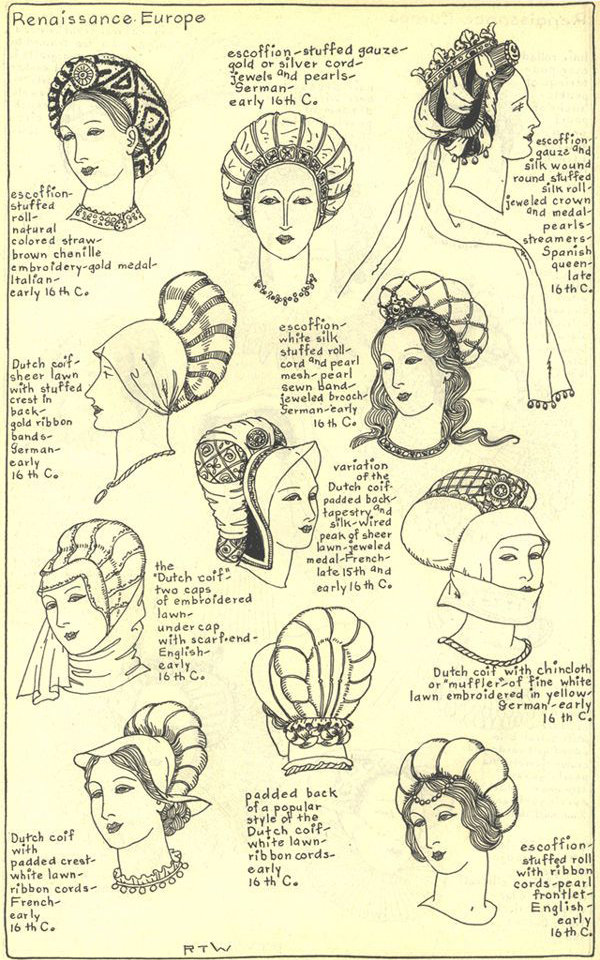 Renaissance Europe
escoffion-stuffed gauze-
gold or silver cord-
jewels and pearls-
German-
early 16th C.
escoffion-
stuffed
roll-
natural
colored straw-
brown chenille
embroidery-gold medal-
Italian-
early 16th C.
escoffion-
gauze and
silk wound
round stuffed
silk roll-
jeweled crown
and medal-
pearls-
streamers-
Spanish
queen-
late
16th C.
Dutch coif-
sheer lawn
with stuffed
crest in
back-
gold ribbon
bands-
German-
early
16th C.
escoffion-
white silk
stuffed roll-
cord and pearl
mesh-pearl
sewn band-
jeweled brooch-
German-early
16th C.
variation
of the
Dutch coif-
padded back-
tapestry and
silk-wired
peak of sheer
lawn-jeweled
medal-French-
late 15th and
early 16th C.
the
"Dutch coif"-
two caps
of embroidered
lawn-
undercap
with scarf-end-
English-
early
16th C.
Dutch coif with chincloth
or "muffler"-of fine white
lawn embroidered in yellow-
German-early
16th C.
Dutch coif
with
padded crest-
white lawn-
ribbon cords-
French-
early
16th C.
padded back
of a popular
style of the
Dutch coif-
white lawn-
ribbon cords-
early
16th C.
escoffion-
stuffed roll
with ribbon
cords-pearl
frontlet-
English-
early
16th C.
RTW